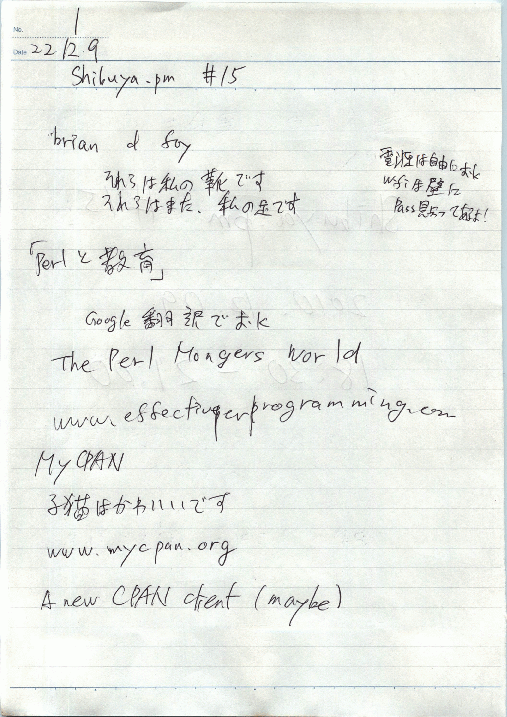 No. 1
Date 22 12 9
Shibuya.pm #15
brian d foy
それらは私の靴です
それらはまた、私の足です
電源は自由にok
wifiは壁に
Pass貼ってあるよ!
「Perlと教育」
Google 翻訳でok
The Perl Mongers World
www.effectiveperlprogramming.com
My CPAN
子猫はかわいいです
www.mycpan.org
A new CPAN client (maybe)